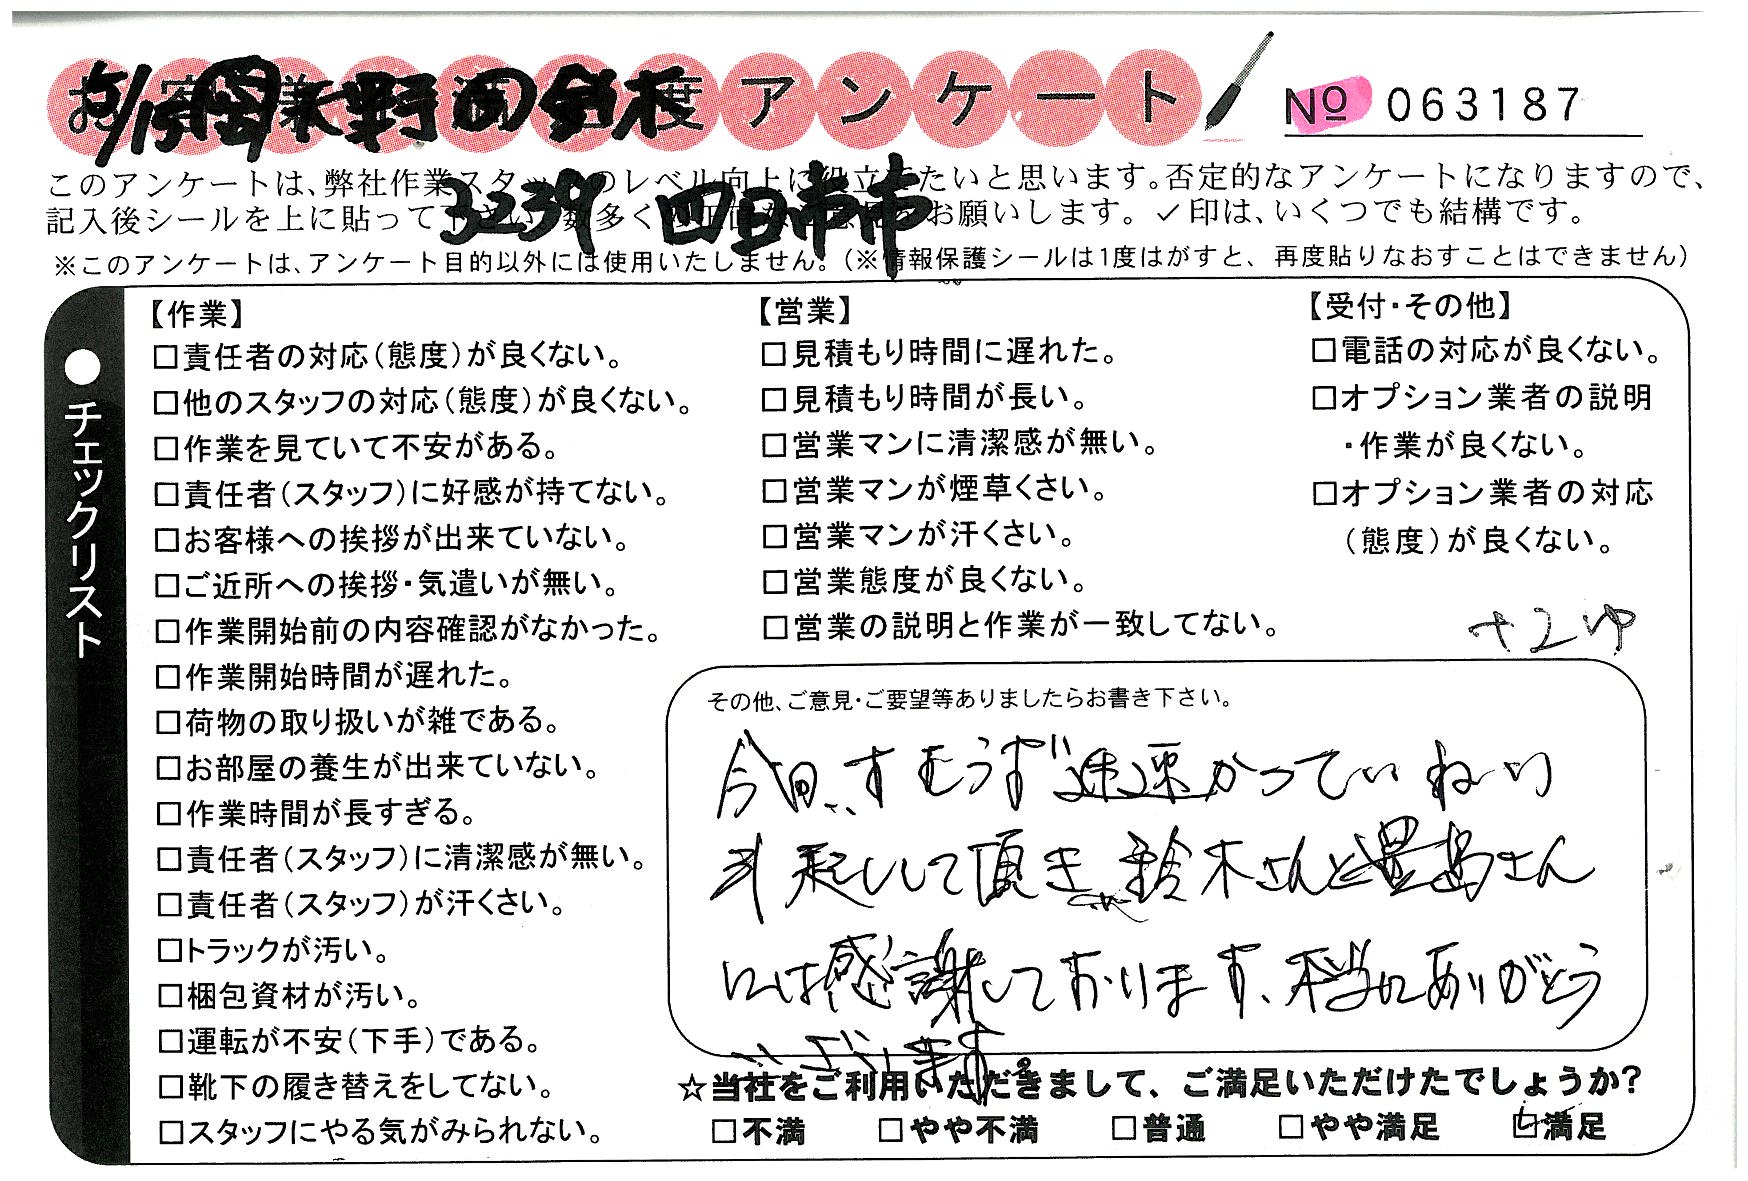 お客様満足度アンケート
5/15 岡 水野 西 鈴木
No 063187
3239 四日市市
このアンケートは、弊社作業スタッフのレベル向上に役立てたいと思います。否定的なアンケートになりますので、
記入後シールを上に貼って下さい。数多くの正直なご意見をお願いします。✓印は、いくつでも結構です。
※このアンケートは、アンケート目的以外には使用いたしません。(※情報保護シールは1度はがすと、再度貼りなおすことはできません)
●チェックリスト
【作業】
□責任者の対応(態度)が良くない。
□他のスタッフの対応(態度)が良くない。
□作業を見ていて不安がある。
□責任者(スタッフ)に好感が持てない。
□お客様への挨拶が出来ていない。
□ご近所への挨拶・気遣いが無い。
□作業開始前の内容確認がなかった。
□作業開始時間が遅れた。
□荷物の取り扱いが雑である。
□お部屋の養生が出来ていない。
□作業時間が長すぎる。
□責任者(スタッフ)に清潔感が無い。
□責任者(スタッフ)が汗くさい。
□トラックが汚い。
□梱包資材が汚い。
□運転が不安(下手)である。
□靴下の履き替えをしてない。
□スタッフにやる気がみられない。
【営業】
□見積もり時間に遅れた。
□見積もり時間が長い。
□営業マンに清潔感が無い。
□営業マンが煙草くさい。
□営業マンが汗くさい。
□営業態度が良くない。
□営業の説明と作業が一致してない。
【受付・その他】
□電話の対応が良くない。
□オプション業者の説明
・作業が良くない。
□オプション業者の対応
(態度)が良くない。
その他、ご意見・ご要望等ありましたらお書き下さい。
今回、すむうず迅速かつていねいに
引起しして頂き、鈴木さんと豊島さん
には感謝しております、本当にありがとう
ございます。
☆当社をご利用いただきまして、ご満足いただけたでしょうか?
□不満 □やや不満 □普通 □やや満足 ☑満足